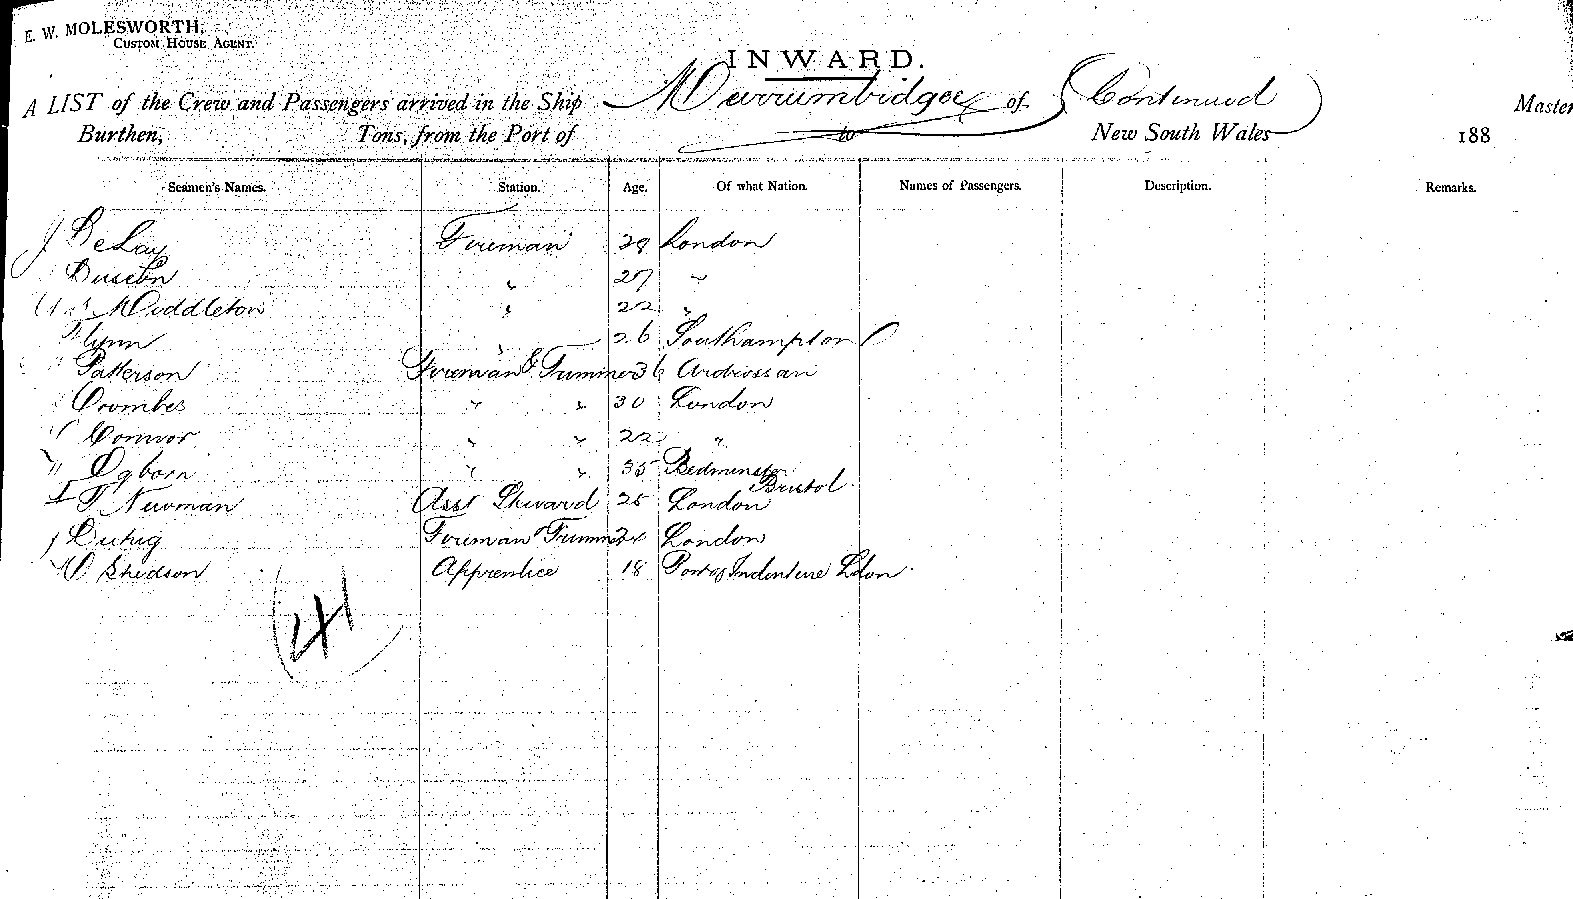 E. W. MOLESWORTH,
CUSTOM HOUSE AGENT.
INWARD.
A LIST of the Crew and Passengers arrived in the Ship Murrumbidgee of (Continued) Master
Burthen, Tons, from the Port of to New South Wales 188
Seamen's Names. Station. Age. Of what Nation. Names of Passengers. Description. Remarks.
J DeLay Fireman 29 London
27 "
Middleton " 22 "
Flynn " 26 Southampton
Patterson Fireman & Trimmer 36 Ardrossan
Coombes " " 30 London
Connor " " 22 "
Ogborn " " 35 Bedminster
Bristol
T Newman Asst Steward 25 London
Duhig Fireman & Trimmer 24 London
Apprentice 18 Port of Indenture Ldon
(24)